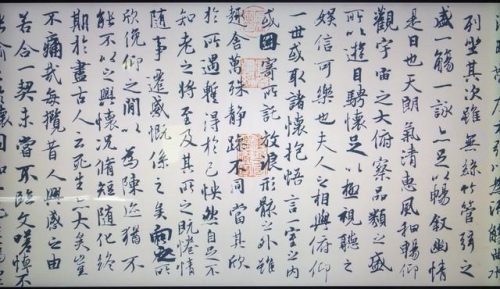 列坐其次雖無絲竹管弦之
盛一觴一詠亦足以暢敘幽情
是日也天朗氣清惠風和暢仰
觀宇宙之大俯察品類之盛
所以遊目騁懷足以極視聽之
娛信可樂也夫人之相與俯仰
一世或取諸懷抱悟言一室之內
或因寄所託放浪形骸之外雖
趣舍萬殊靜躁不同當其欣
於所遇蹔得於己怏然自足不
知老之將至及其所之既惓情
隨事遷感慨係之矣向之所
欣俛仰之間以為陳迹猶不
能不以之興懷況脩短隨化終
期於盡古人云死生亦大矣豈
不痛哉每攬昔人興感之由
若合一契未嘗不臨文嗟悼不